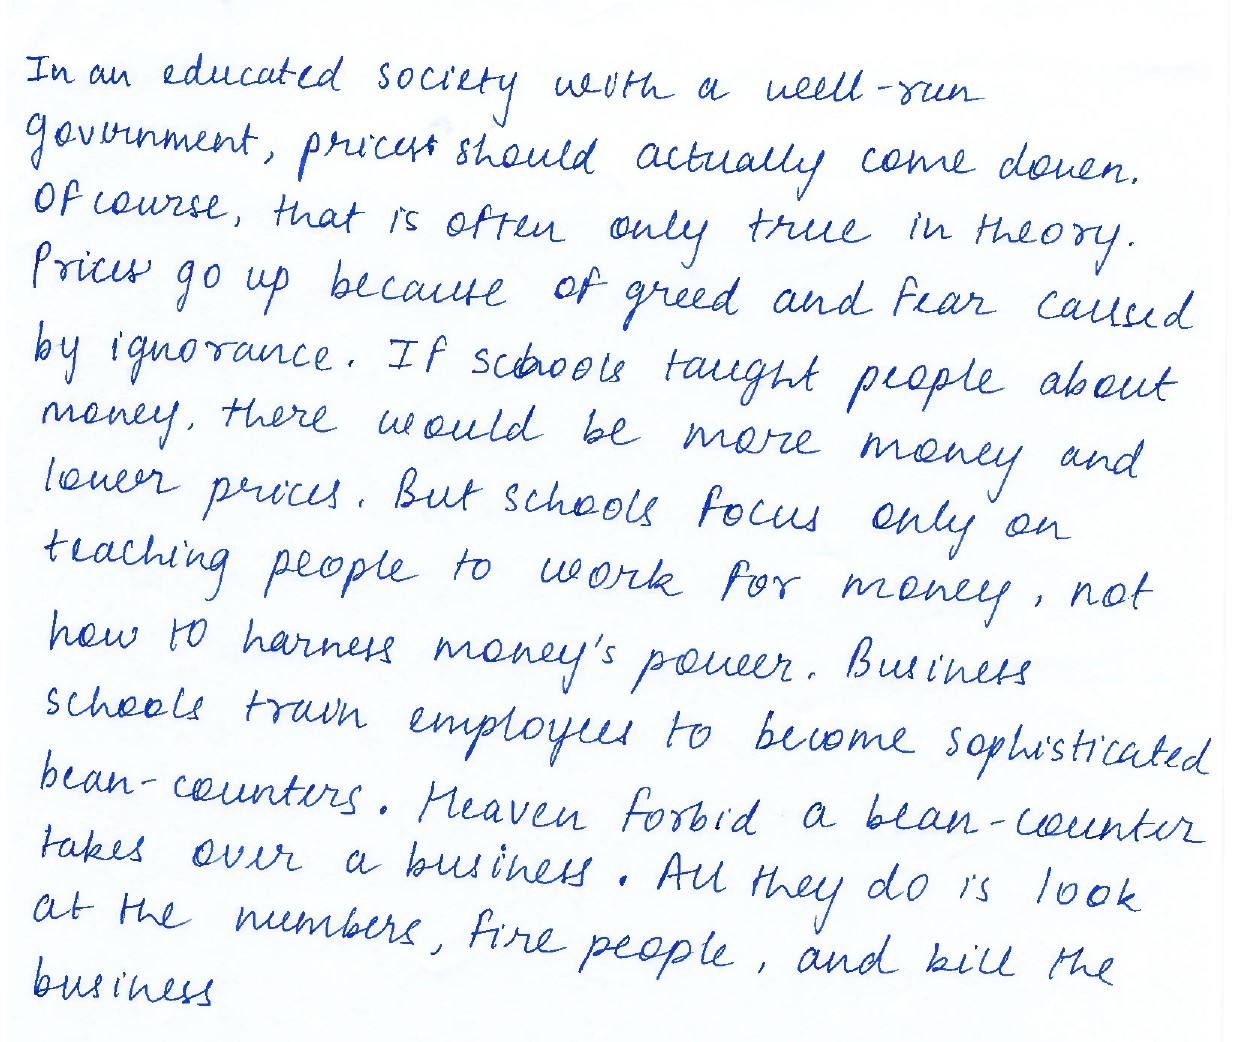 In an educated society with a well-run
government, prices should actually come down.
Of course, that is often only true in theory.
Prices go up because of greed and fear caused
by ignorance. If schools taught people about
money, there would be more money and
lower prices. But schools focus only on
teaching people to work for money, not
how to harness money's power. Business
schools train employees to become sophisticated
bean-counters. Heaven forbid a bean-counter
takes over a business. All they do is look
at the numbers, fire people, and kill the
business